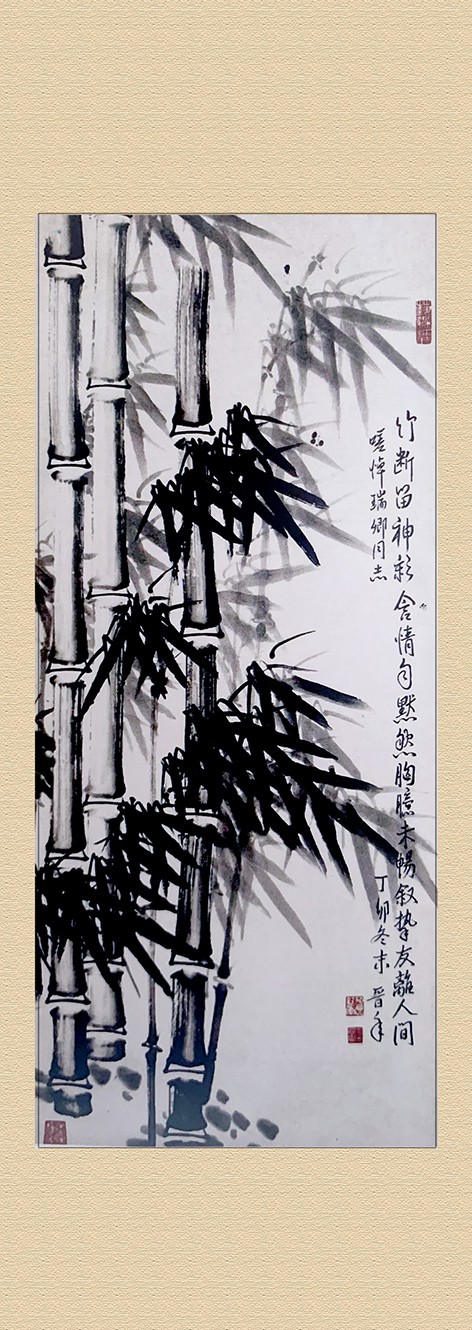 竹断留神彩含情自默然胸臆未畅叙挚友离人间
嗟悼瑞卿同志
丁卯冬末
晋年